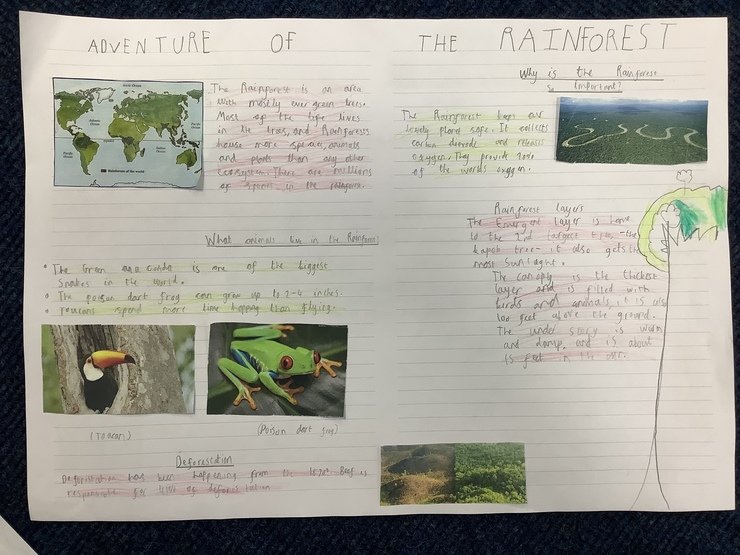 ADVENTURE OF THE RAINFOREST
The Rainforest is an area
with mostly ever green trees.
Most of the life lives
in the trees, and Rainforests
house more species, animals
and plants than any other
Ecosystem. There are millions
of in the rainforest.
Arctic Ocean
Pacific Ocean
Atlantic Ocean
Equator
Indian Ocean
Rainforests of the world
What animals live in the Rainforest
• The Green anaconda is one of the biggest
Snakes in the world.
• The poison dart frog can grow up to 2-4 inches.
• Toucans spend more time hopping than flying.
(Toucan)
(Poison dart frog)
Deforestation
Deforestation has been happening from the Beef is
responsible for 41% of
Why is the Rainforest
So Important?
The Rainforest keeps our
lovely planet safe. It collects
carbon dioxide and releases
oxygen. They provide
of the worlds oxygen.
Rainforest layers
The Emergent layer is home
to the 2nd largest tree, -the
kapok tree- it also gets the
most Sunlight.
The canopy is the thickest
layer and is filled with
birds and animals it is
100 feet above the ground.
The under story is warm
and damp, and is about
15 feet in the air.